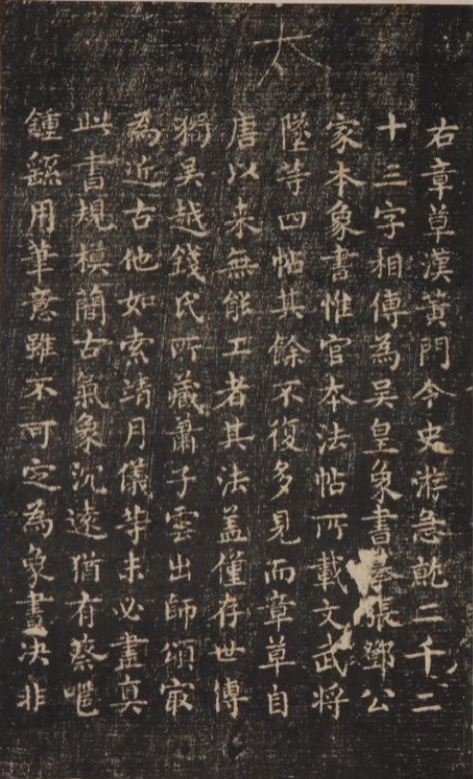 太
右章草漢黃門令史游急就二千二
十三字相傳為吳皇象書摹張鄧公
家本象書惟官本法帖所載文武將
墜等四帖其餘不復多見而章草自
唐以来無能工者其法盖僅存世傳
獨吳越錢氏所藏蕭子雲出師頌㝡
為近古他如索靖月儀等未必盡真
此書規模簡古氣象沉遠猶有蔡邕
鍾繇用筆意雖不可定為象書决非